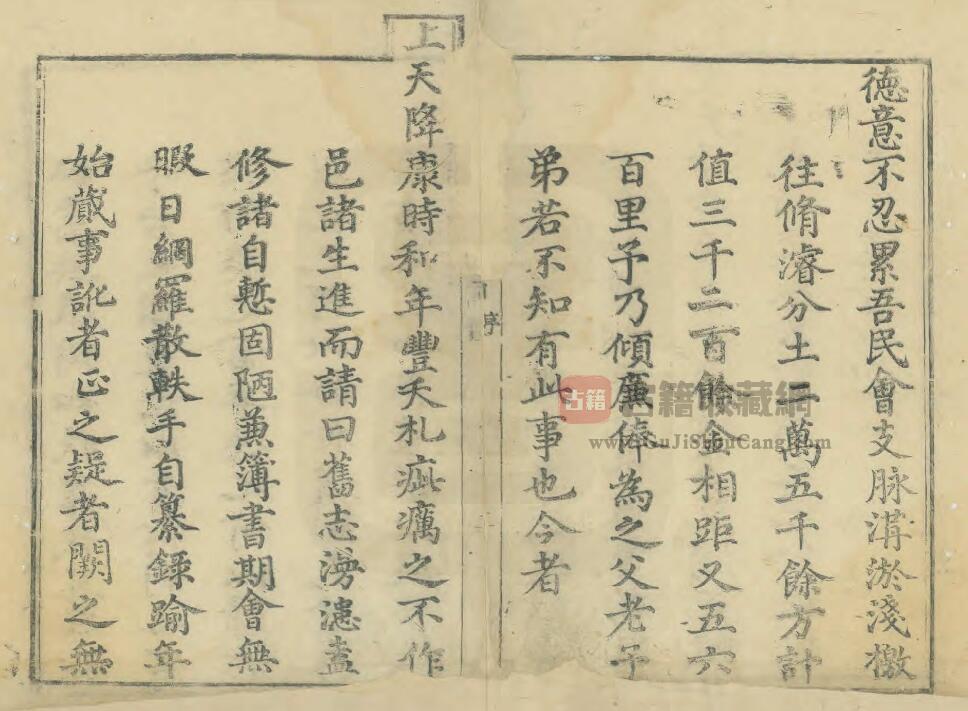 德意不忍累吾民會支脉溝淤淺檄
往脩濬分土二萬五千餘方計
值三千二百餘金相距又五六
百里予乃傾廉俸為之父老子
弟若不知有此事也今者
序
上
天降康時和年豐夭札疵癘之不作
邑諸生進而請曰舊志漫漶盍
修諸自慙固陋兼簿書期會無
暇日網羅散軼手自纂錄踰年
始蕆事訛者正之疑者闕之無
古籍
古籍收藏網
www.GuJiShouCang.com